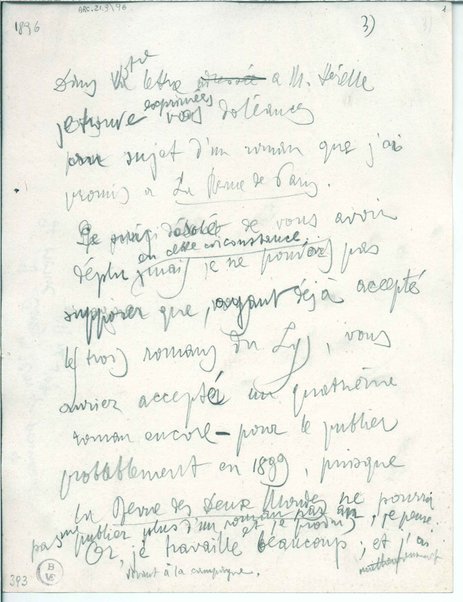 ARC.21.9/96
1896
3)
Dans Votre lettre adressée a M. Hérelle
je trouve exprimées vos doléances
au sujet d'un roman que j'ai
promis a La Revue de Paris.
Je suis désolé de vous avoir
déplu en cette circonstance, mais je ne pouvais pas
supposer que, ayant déjà accepté
les trois romans du Lys, vous
auriez accepté un quatrième
roman encore – pour le publier
probablement en 1899, puisque
la Revue des Deux Mondes ne pourra
pas publier plus d'un roman par an, je pense.
Or, je travaille beaucoup, et je produis, et j'ai
vivant à la campagne.
393